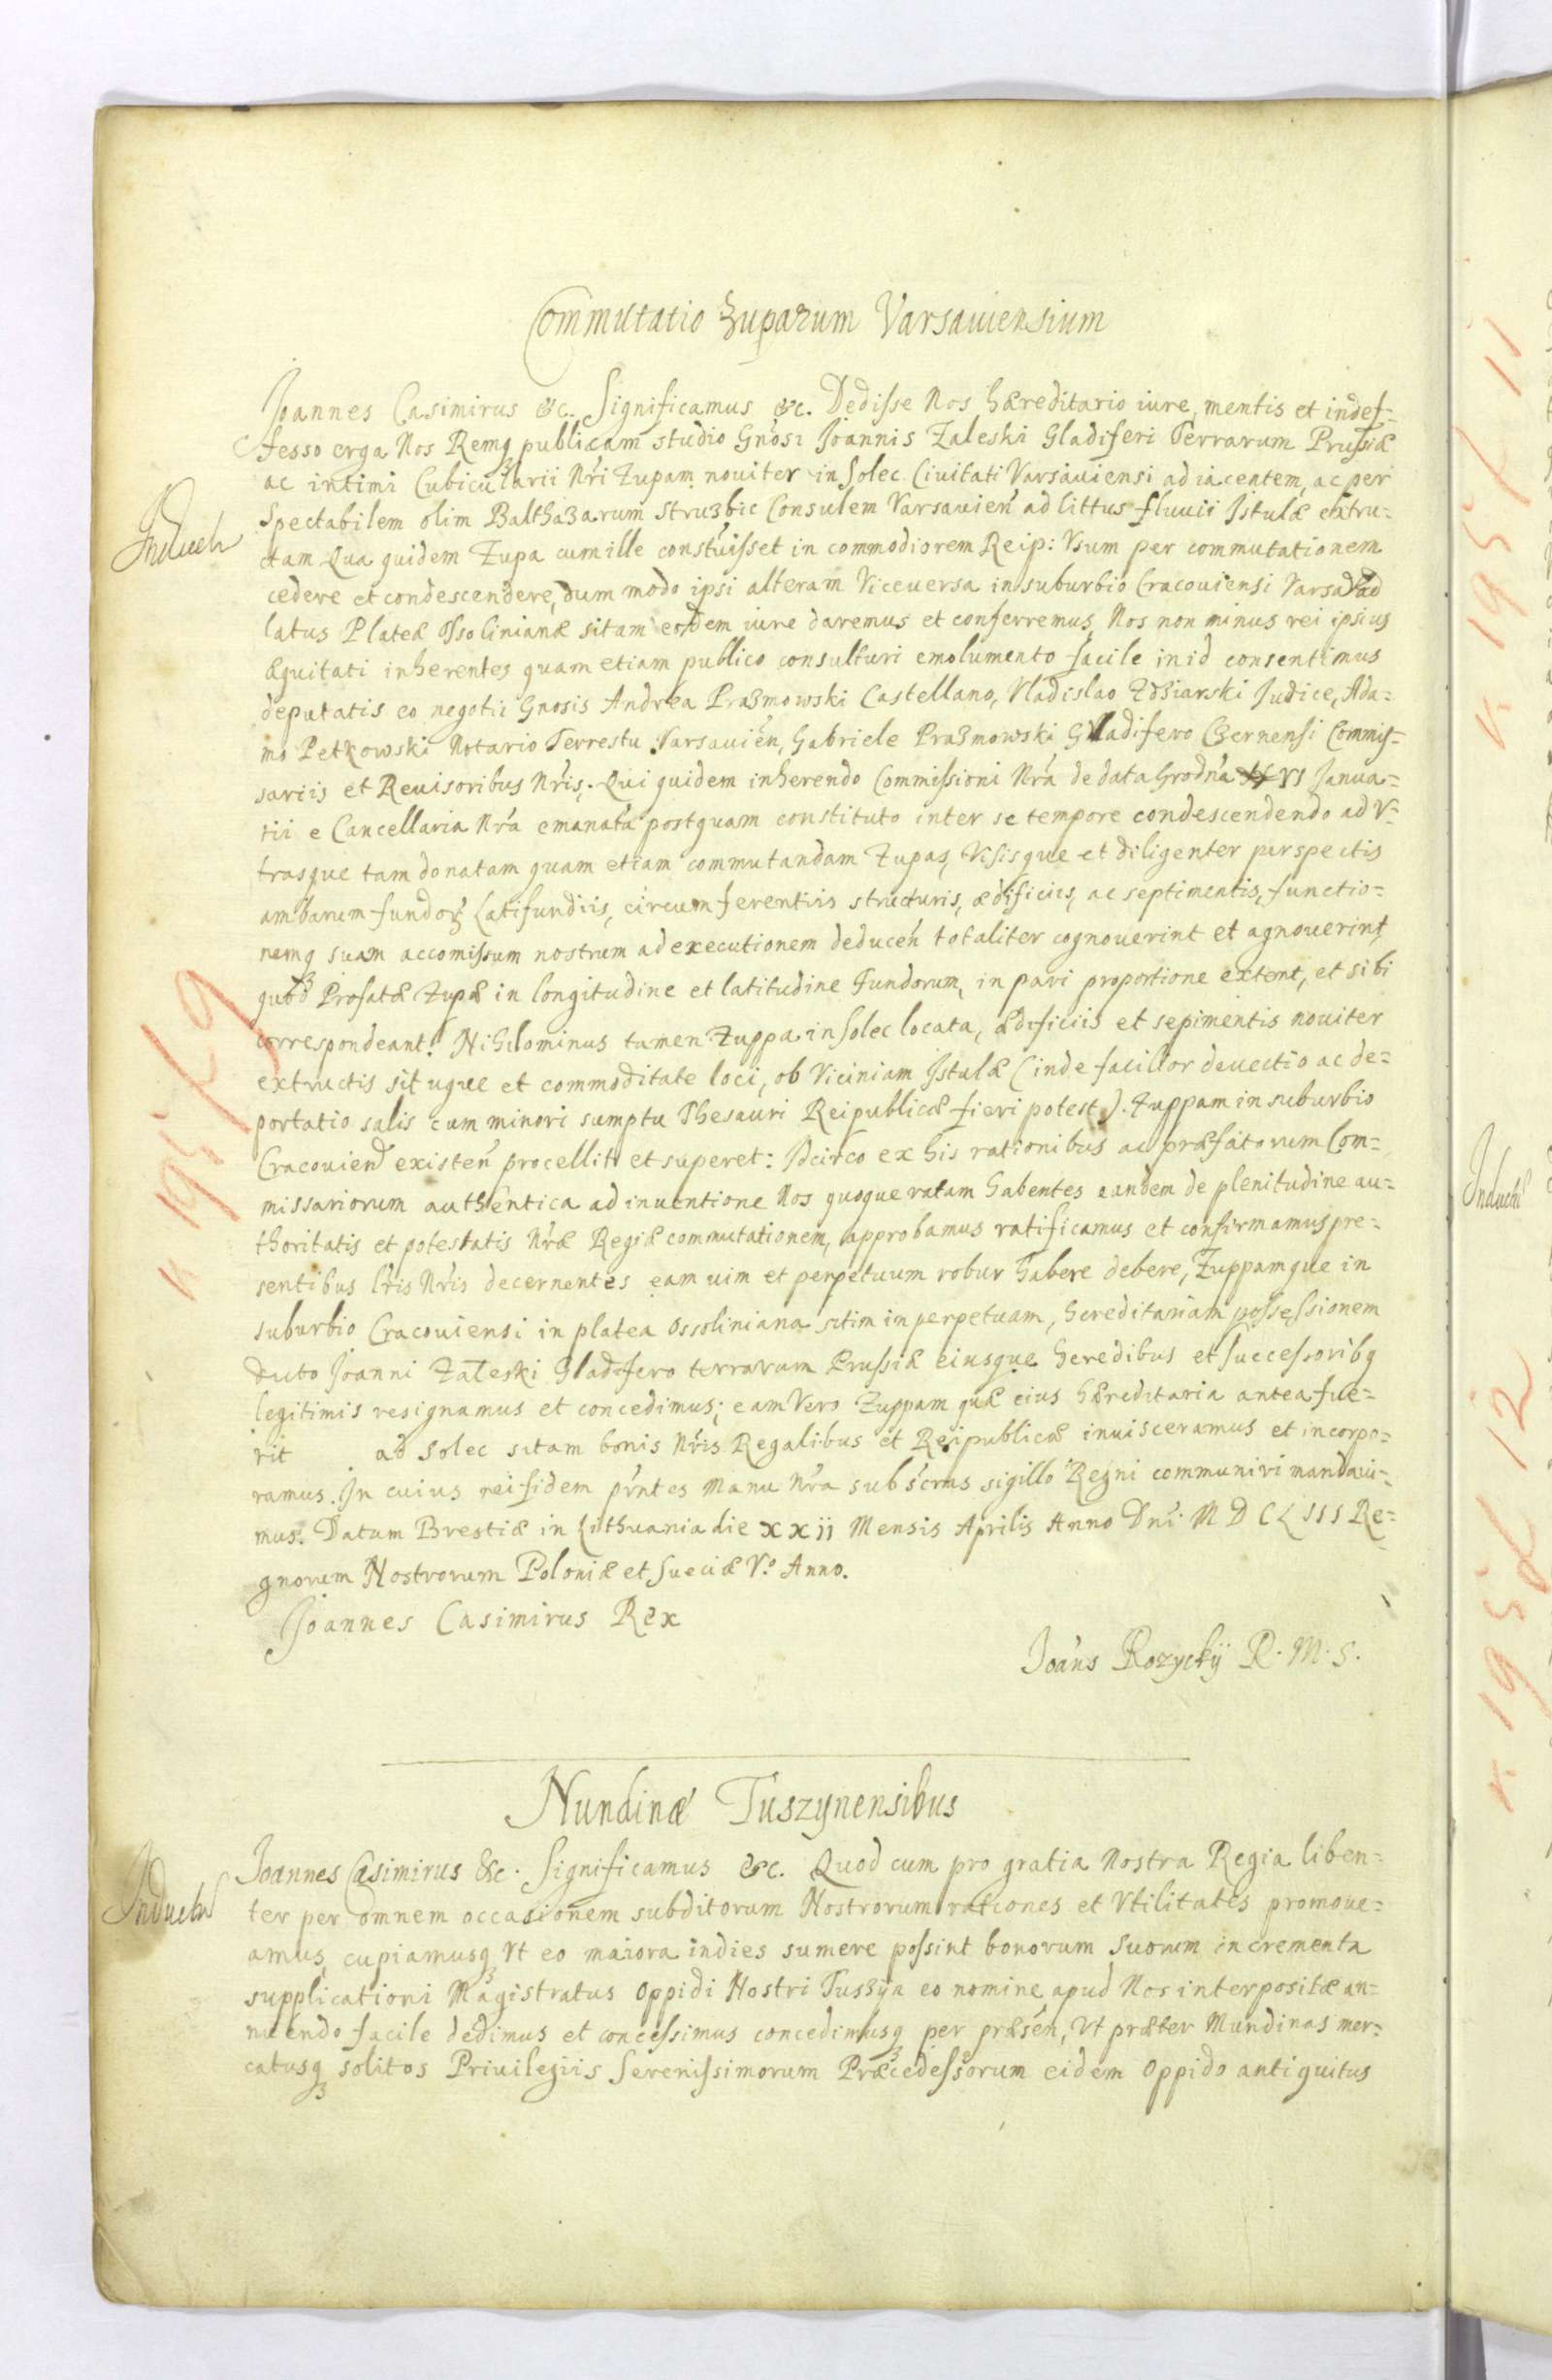 Commutatio Zuparum Varsauiensium
Joannes Casimirus &c. Significamus &c. Dedisse Nos hæreditario iure, mentis et indef-
fesso erga Nos Remq publicam studio Gnosi Joannis Zaleski Gladiferi Terrarum Prussiæ
ac intimi Cubicularii Nri Zupam nouiter in Solec Ciuitati Varsauiensi ad iacentem, ac per
Inducta
Spectabilem olim Balthazarum Struzbic Consulem Varsauien ad littus fluuii Istulæ extru-
ctam Qua quidem Zupa cum ille constuisset in commodiorem Reip: Vsum per commutationem
cedere et condescendere, dum modo ipsi alteram Viceuersa in suburbio Cracouiensi Varsa ad
latus Plateæ Ossolinianæ sitam eodem iure daremus et conferremus, Nos non minus rei ipsius
æquitati inherentes quam etiam publico consulturi emolumento facile in id consentimus
deputatis eo negotii Gnosis Andrea Prazmowski Castellano, Vladislao Zdziarski Judice, Ada-
mo Petkowski Notario Terrestu Varsauien, Gabriele Prazmowski Gladifero Czernensi Commis-
sariis et Reuisoribus Nris. Qui quidem inherendo Commissioni Nra de data Grodna VI Janua-
rii e Cancellaria Nra emanata postquam constituto inter se tempore condescendendo ad V-
trasque tam donatam quam etiam commutandam Zupas, Visisque et diligenter perspectis
ambarum fundor Latifundiis, circumferentiis structuris, ædificiis, ac septimentis, functio-
nemq suam accomissum nostrum ad executionem deducen totaliter cognouerint et agnouerint
quod Præfatæ Zupæ in longitudine et latitudine Fundorum, in pari proportione extent, et sibi
correspondeant. Nihilominus tamen Zuppa in Solec locata, ædificiis et sepimentis nouiter
extructis situque et commoditate loci, ob Viciniam Istulæ (inde facilior deuectio ac de-
portatio salis cum minori sumptu Thesauri Reipublicæ fieri potest). Zuppam in suburbio
Cracouien existen procellit et superet: Idcirco ex his rationibus ac præfatorum Com-
missariorum authentica ad inuentione Nos quoque ratam habentes eandem de plenitudine au-
thoritatis et potestatis Nræ Regiæ commutationem, approbamus ratificamus et confirmamus pre-
sentibus lris Nris decernentes eam uim et perpetuum robur habere debere, Zuppamque in
suburbio Cracouiensi in platea Ossoliniana sitim in perpetuam, hereditariam possessionem
dicto Joanni Zaleski Gladifero terrarum Prussiæ eiusque heredibus et successoribq
legitimis resignamus et concedimus; eam Vero Zuppam quæ eius hæreditaria antea fue-
rit ad Solec sitam bonis Nris Regalibus et Reipublicæ inuisceramus et incorpo-
ramus. In cuius rei fidem prntes Manu Nra subscras sigillo Regni communiri mandaui-
mus. Datum Brestiæ in Lithuania die XXII Mensis Aprilis Anno Dni. M D C L III Re-
gnorum Nostrorum Poloniæ et Sueciæ V.o Anno.
Joannes Casimirus Rex
Joans Rozyckij R. M. S.
Nundinæ Tuszynensibus
Joannes Casimirus &c. Significamus &c. Quod cum pro gratia Nostra Regia liben-
Inducta
ter per omnem occasionem subditorum Nostrorum rationes et Vtilitates promoue-
amus, cupiamusq Vt eo maiora indies sumere possint bonorum suorum incrementa
supplicationi Magistratus Oppidi Nostri Tuszyn eo nomine apud Nos interpositæ an-
nuendo facile dedimus et concessimus concedimusq per præsen, Vt præter Nundinas mer-
catusq solitos Priuilegiis Serenissimorum Prædecessorum eidem Oppido antiquitus
K 195 K 9
K 195 K 11
Inducta
K 195 K 12